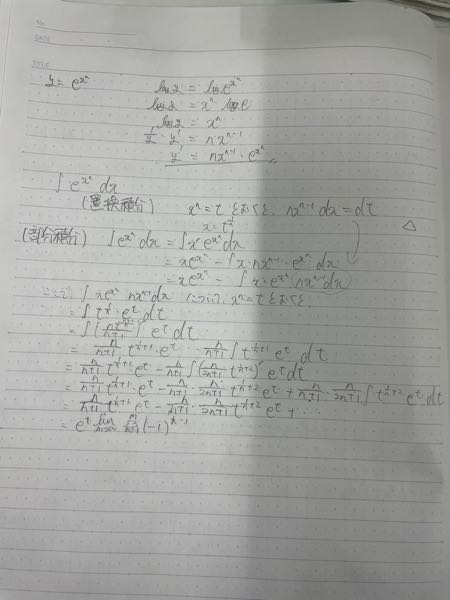 No.
DATE
TITLE
y = e^{x^n}
log y = log e^{x^n}
log y = x^n log e
log y = x^n
1/y · y' = nx^{n-1}
y' = nx^{n-1} · e^{x^n}
∫ e^{x^n} dx
(置換積分) x^n = t とおくと、 nx^{n-1} dx = dt
x = t^{1/n}
(部分積分) ∫ e^{x^n} dx = ∫ x' e^{x^n} dx
= xe^{x^n} - ∫ x · nx^{n-1} · e^{x^n} dx
= xe^{x^n} - ∫ x · e^{x^n} nx^{n-1} dx
ここで、 ∫ xe^{x^n} nx^{n-1} dx について、 x^n = t とおくと、
= ∫ t^{1/n} · e^t dt
= ∫ ( )' e^t dt
= n/(n+1) t^{1/n+1} · e^t - n/(n+1) ∫ t^{1/n+1} e^t dt
= n/(n+1) t^{1/n+1} e^t - n/(n+1) ∫ (n/(2n+1) t^{1/n+2})' e^t dt
= n/(n+1) t^{1/n+1} · e^t - n/(n+1) · n/(2n+1) t^{1/n+2} e^t + n/(n+1) · n/(2n+1) ∫ t^{1/n+2} e^t dt
= n/(n+1) t^{1/n+1} e^t - n/(n+1) · n/(2n+1) t^{1/n+2} e^t + ...
= e^t lim Σ (-1)^{k-1}